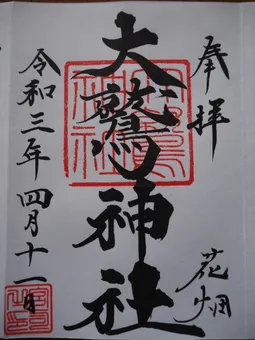 奉拝
花畑
大鷲神社
令和三年四月十一日